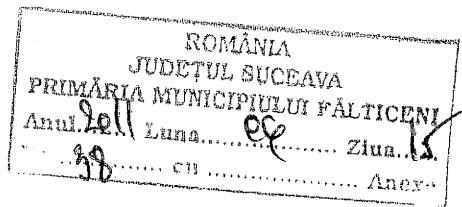 ROMÂNIA
JUDEȚUL SUCEAVA
PRIMĂRIA MUNICIPIULUI FĂLTICENI
Anul 2011 Luna Ziua 15
38 cu Anexe